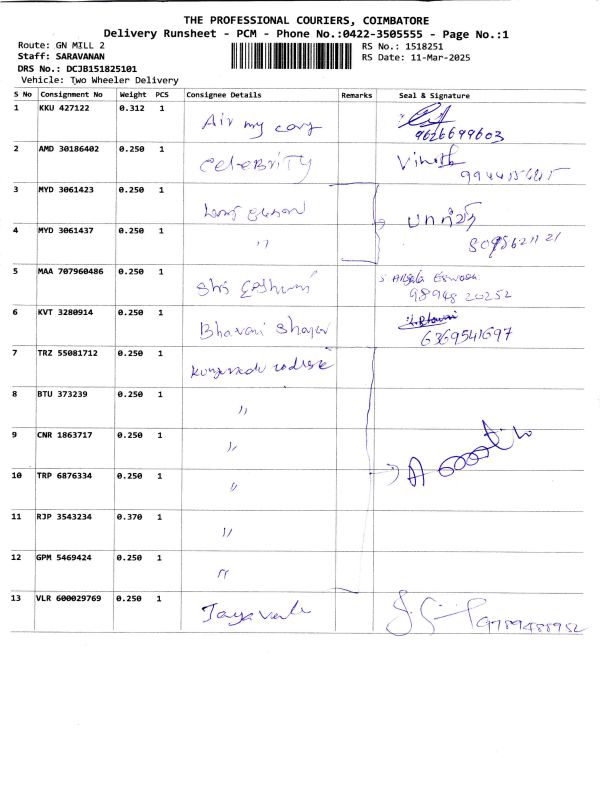 THE PROFESSIONAL COURIERS, COIMBATORE
Delivery Runsheet - PCM - Phone No.:0422-3505555 - Page No.:1
Route: GN MILL 2 RS No.: 1518251
Staff: SARAVANAN RS Date: 11-Mar-2025
DRS No.: DCJB151825101
Vehicle: Two Wheeler Delivery
S No Consignment No Weight PCS Consignee Details Remarks Seal & Signature
1 KKU 427122 0.312 1 Air my
9626699603
2 AMD 30186402 0.250 1 CeleBRiTY Vinoth
3 MYD 3061423 0.250 1
4 MYD 3061437 0.250 1 "
5 MAA 707960486 0.250 1 Shri
98948 20252
6 KVT 3280914 0.250 1 Bhavani
6369541697
7 TRZ 55081712 0.250 1
8 BTU 373239 0.250 1 "
9 CNR 1863717 0.250 1 "
10 TRP 6876334 0.250 1 "
11 RJP 3543234 0.370 1 "
12 GPM 5469424 0.250 1 "
13 VLR 600029769 0.250 1 9789488952